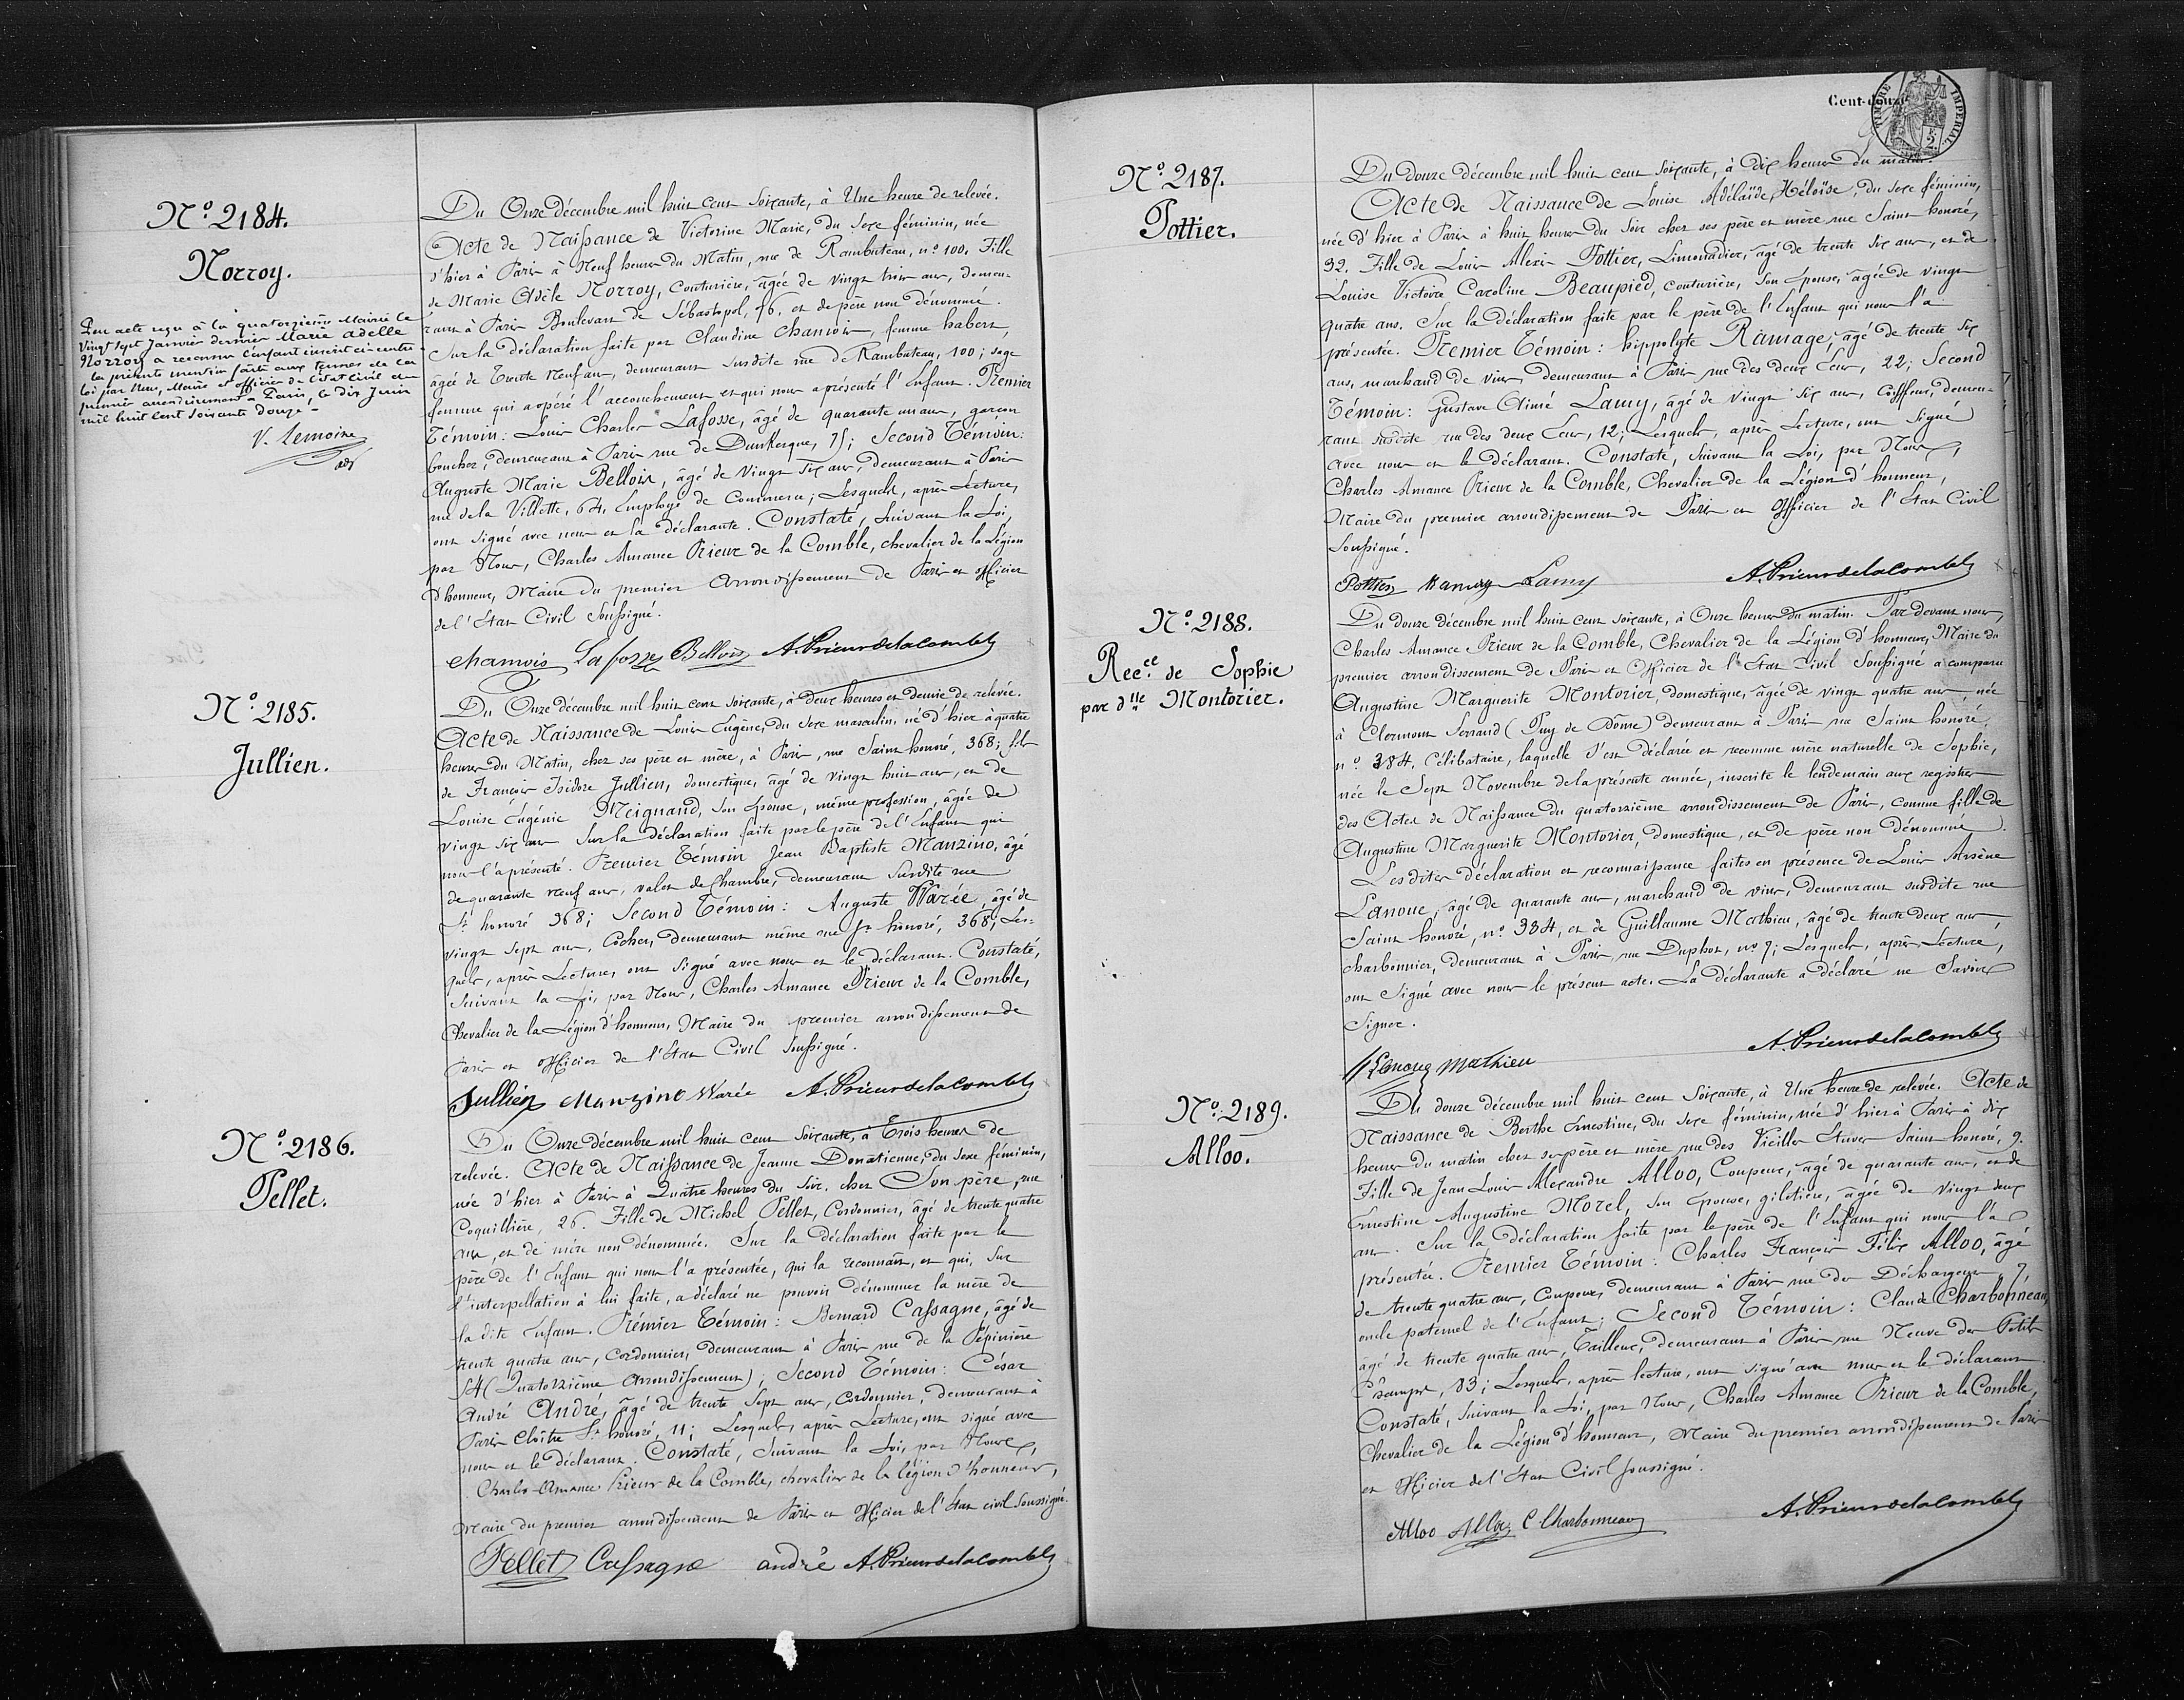 N.º 2184.
Norroy.
Par acte reçu à la quatorzième Mairie le
vingt sept Janvier dernier Marie Adelle
Norroy a reconnu l'enfant inscrit ci-contre
la présente mention faite aux termes de la
loi par Nous, Maire et officier de l'état civil du
premier arrondissement - Paris, le dix Juin
mil huit cent soixante douze -
V. Lemoine
adj
Du Onze décembre mil huit cent soixante, à Une heure de relevée.
Acte de Naissance de Victorine Marie, du sexe féminin, née
d'hier à Paris à Neuf heures du Matin, rue de Rambuteau, n.º 100. Fille
de Marie Adèle Norroy, Couturière, âgée de vingt trois ans, demeu-
rant à Paris Boulevart de Sébastopol, 96. et de père non dénommé.
Sur la déclaration faite par Claudine Chamois, femme habert,
âgée de Trente Neuf ans, demeurant susdite rue de Rambuteau, 100; sage
femme qui a opéré l'accouchement et qui nous a présenté l'Enfant. Premier
Témoin: Louis Charles Lafosse, âgé de quarante un ans, garçon
boucher, demeurant à Paris rue de Dunkerque, 75; Second Témoin:
Auguste Marie Bellois, âgé de Vingt Six ans, demeurant à Paris
rue de la Villette, 64, Employé de Commerce; Lesquels, après Lecture,
ont signé avec nous et la déclarante. Constaté, Suivant la Loi,
par Nous, Charles Amance Prieur de la Comble, chevalier de la Légion
d'honneur, Maire du premier Arrondissement de Paris et Officier
de l'Etat Civil Soussigné.
Chamois Lafosse Bellois A. Prieur de la Comble
N.º 2185.
Jullien.
Du Onze décembre mil huit cent soixante, à deux heures et demie de relevée.
Acte de Naissance de Louis Eugène, du sexe masculin, né d'hier à quatre
heures du Matin, chez ses père et mère, à Paris, rue Saint honoré, 368; fils
de François Isidore Jullien, domestique, âgé de vingt huit ans, et de
Louise Eugénie Meignand, son Epouse, même profession, âgée de
vingt six ans Sur la déclaration faite par le père de l'Enfant qui
nous l'a présenté. Premier Témoin Jean Baptiste Manzino, âgé
de quarante neuf ans, valet de Chambre, demeurant Susdite rue
St. honoré 368; Second Témoin: Auguste Warée, âgé de
vingt Sept ans, Cocher, demeurant même rue St. honoré, 368, Les-
quels, après Lecture, ont signé avec nous et le déclarant. Constaté,
Suivant la Loi, par Nous, Charles Amance Prieur de la Comble,
Chevalier de la Légion d'honneur, Maire du premier arrondissement de
Paris et Officier de l'Etat Civil Soussigné.
Jullien Manzino Warée A. Prieur de la Comble
N.º 2186.
Pellet.
Du Onze décembre mil huit cent Soixante, à Trois heures de
relevée. Acte de Naissance de Jeanne Donatienne, du sexe féminin,
née d'hier à Paris à Quatre heures du Soir, chez Son père, rue
Coquillière, 26. Fille de Michel Pellet, Cordonnier, âgé de trente quatre
ans, et de mère non dénommée. Sur la déclaration faite par le
père de l'Enfant qui nous l'a présentée, qui la reconnaît, et qui, Sur
l'interpellation à lui faite, a déclaré ne pouvoir dénommer la mère de
la dite Enfant. Prémier Témoin: Bernard Cassagne, âgé de
trente quatre ans, Cordonnier, demeurant à Paris rue de la Pépinière
54 (Quatorzième Arrondissement); Second Témoin: César
André André, âgé de trente Sept ans, Cordonnier, demeurant à
Paris Cloître St. honoré, 11; Lesquels, après Lecture, ont signé avec
nous et le déclarant. Constaté, Suivant la Loi, par Nous,
Charles-Amance Prieur de la Comble, chevalier de la légion d'honneur,
Maire du premier arrondissement de Paris et Officier de l'Etat civil soussigné.
Pellet Cassagne andré A. Prieur de la Comble
Cent-douze
TIMBRE IMPERIAL
N.º 2187.
Pottier.
Du douze décembre mil huit cent soixante, à Dix heures du matin.
Acte de Naissance de Louise Adélaïde Héloïse, du sexe féminin,
née d'hier à Paris à huit heures du Soir chez ses père et mère rue Saint honoré,
92. Fille de Louis Alexis Pottier, Limonadier, âgé de trente Six ans, et de
Louise Victoire Caroline Beaupied, couturière, Son épouse, âgée de vingt
quatre ans. Sur la déclaration faite par le père de l'Enfant qui nous l'a
présentée. Premier Témoin: hippolyte Ramage, âgé de trente Six
ans, marchand de vins demeurant à Paris rue des deux Ecus, 22; Second
Témoin: Gustave Aimé Lamy, âgé de vingt Six ans, Coiffeur, demeu-
rant susdite rue des deux Ecus, 12; Lesquels, après Lecture, ont Signé
avec nous et le déclarant. Constaté, Suivant la Loi, par Nous,
Charles Amance Prieur de la Comble, Chevalier de la Légion d'honneur,
Maire du premier arrondissement de Paris et Officier de l'Etat Civil
Soussigné.
Pottier Ramage Lamy A. Prieur de la Comble
N.º 2188.
Rec.ce de Sophie
par d.lle Montorier.
Du douze décembre mil huit cent soixante, à Onze heures du matin. Par devant nous,
Charles Amance Prieur de la Comble, Chevalier de la Légion d'honneur, Maire du
premier arrondissement de Paris et Officier de l'Etat Civil Soussigné a comparu
Augustine Marguerite Montorier, domestique, âgée de vingt quatre ans, née
à Clermont Ferrand (Puy de Dôme) demeurant à Paris rue Saint honoré,
n.º 384. Célibataire, laquelle S'est déclarée et reconnue mère naturelle de Sophie,
née le Sept Novembre de la présente année, inscrite le lendemain aux registres
des Actes de Naissance du quatorzième arrondissement de Paris, comme fille de
Augustine Marguerite Montorier, domestique, et de père non dénommé.
Lesdites déclaration et reconnaissance faites en présence de Louis Arsène
Lanoue, âgé de quarante ans, marchand de vins, demeurant susdite rue
Saint honoré, n.º 384, et de Guillaume Mathieu, âgé de trente deux ans
charbonnier, demeurant à Paris, rue Duphot, n.º 7; Lesquels, après Lecture,
ont Signé avec nous le présent acte. La déclarante a déclaré ne Savoir
Signer.
Lanoue Mathieu A. Prieur de la Comble
N.º 2189.
Alloo.
Du douze décembre mil huit cent soixante, à Une heure de relevée. Acte de
Naissance de Berthe Ernestine, du sexe féminin, née d'hier à Paris à dix
heures du matin chez ses père et mère rue des Vieilles Etuves Saint honoré, 9.
Fille de Jean Louis Alexandre Alloo, Coupeur, âgé de quarante ans, et de
Ernestine Augustine Morel, son Epouse, giletière, âgée de Vingt deux
ans. Sur la déclaration faite par le père de l'Enfant qui nous l'a
présentée. Premier Témoin: Charles François Félix Alloo, âgé
de trente quatre ans, Coupeur, demeurant à Paris rue des Déchargeurs, 7,
oncle paternel de l'Enfant; Second Témoin: Claude Charbonneau,
âgé de trente quatre ans, Tailleur, demeurant à Paris rue Neuve des Petits
Champs, 83; Lesquels, après lecture, ont signé avec nous et le déclarant.
Constaté, Suivant la Loi, par Nous, Charles Amance Prieur de la Comble,
Chevalier de la Légion d'honneur, Maire du premier arrondissement de Paris
et Officier de l'Etat Civil soussigné.
Alloo Alloo C. Charbonneau A. Prieur de la Comble